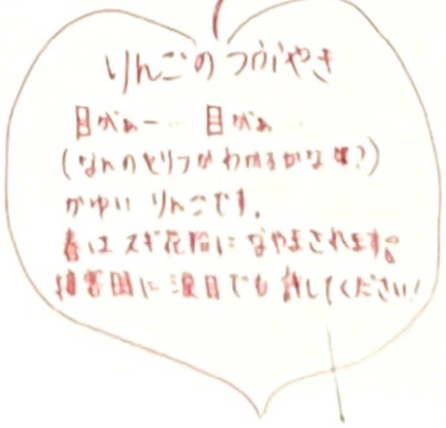 りんごのつぶやき
目がぁー… 目がぁ…
(なんのセリフかわかるかな?)
かゆい りんごです。
春はスギ花粉になやまされます。
接客中に涙目でも許してください!